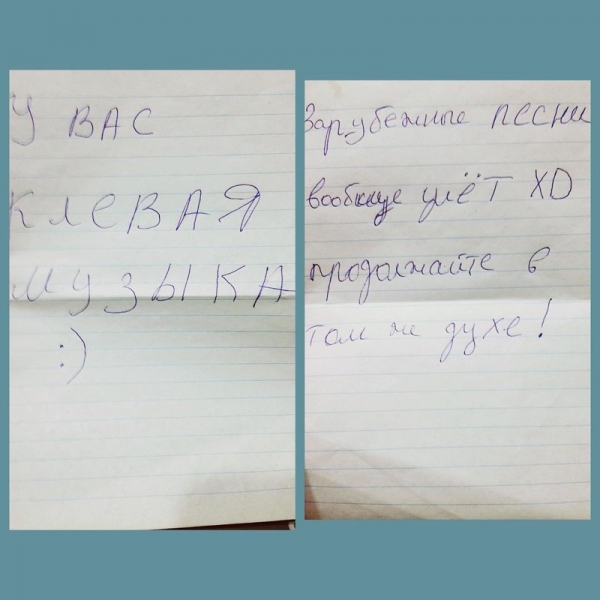 У ВАС
КЛЕВАЯ
МУЗЫКА
:)
Зарубежные ПЕСНИ
вообще улёт XD
продолжайте в
том же духе!